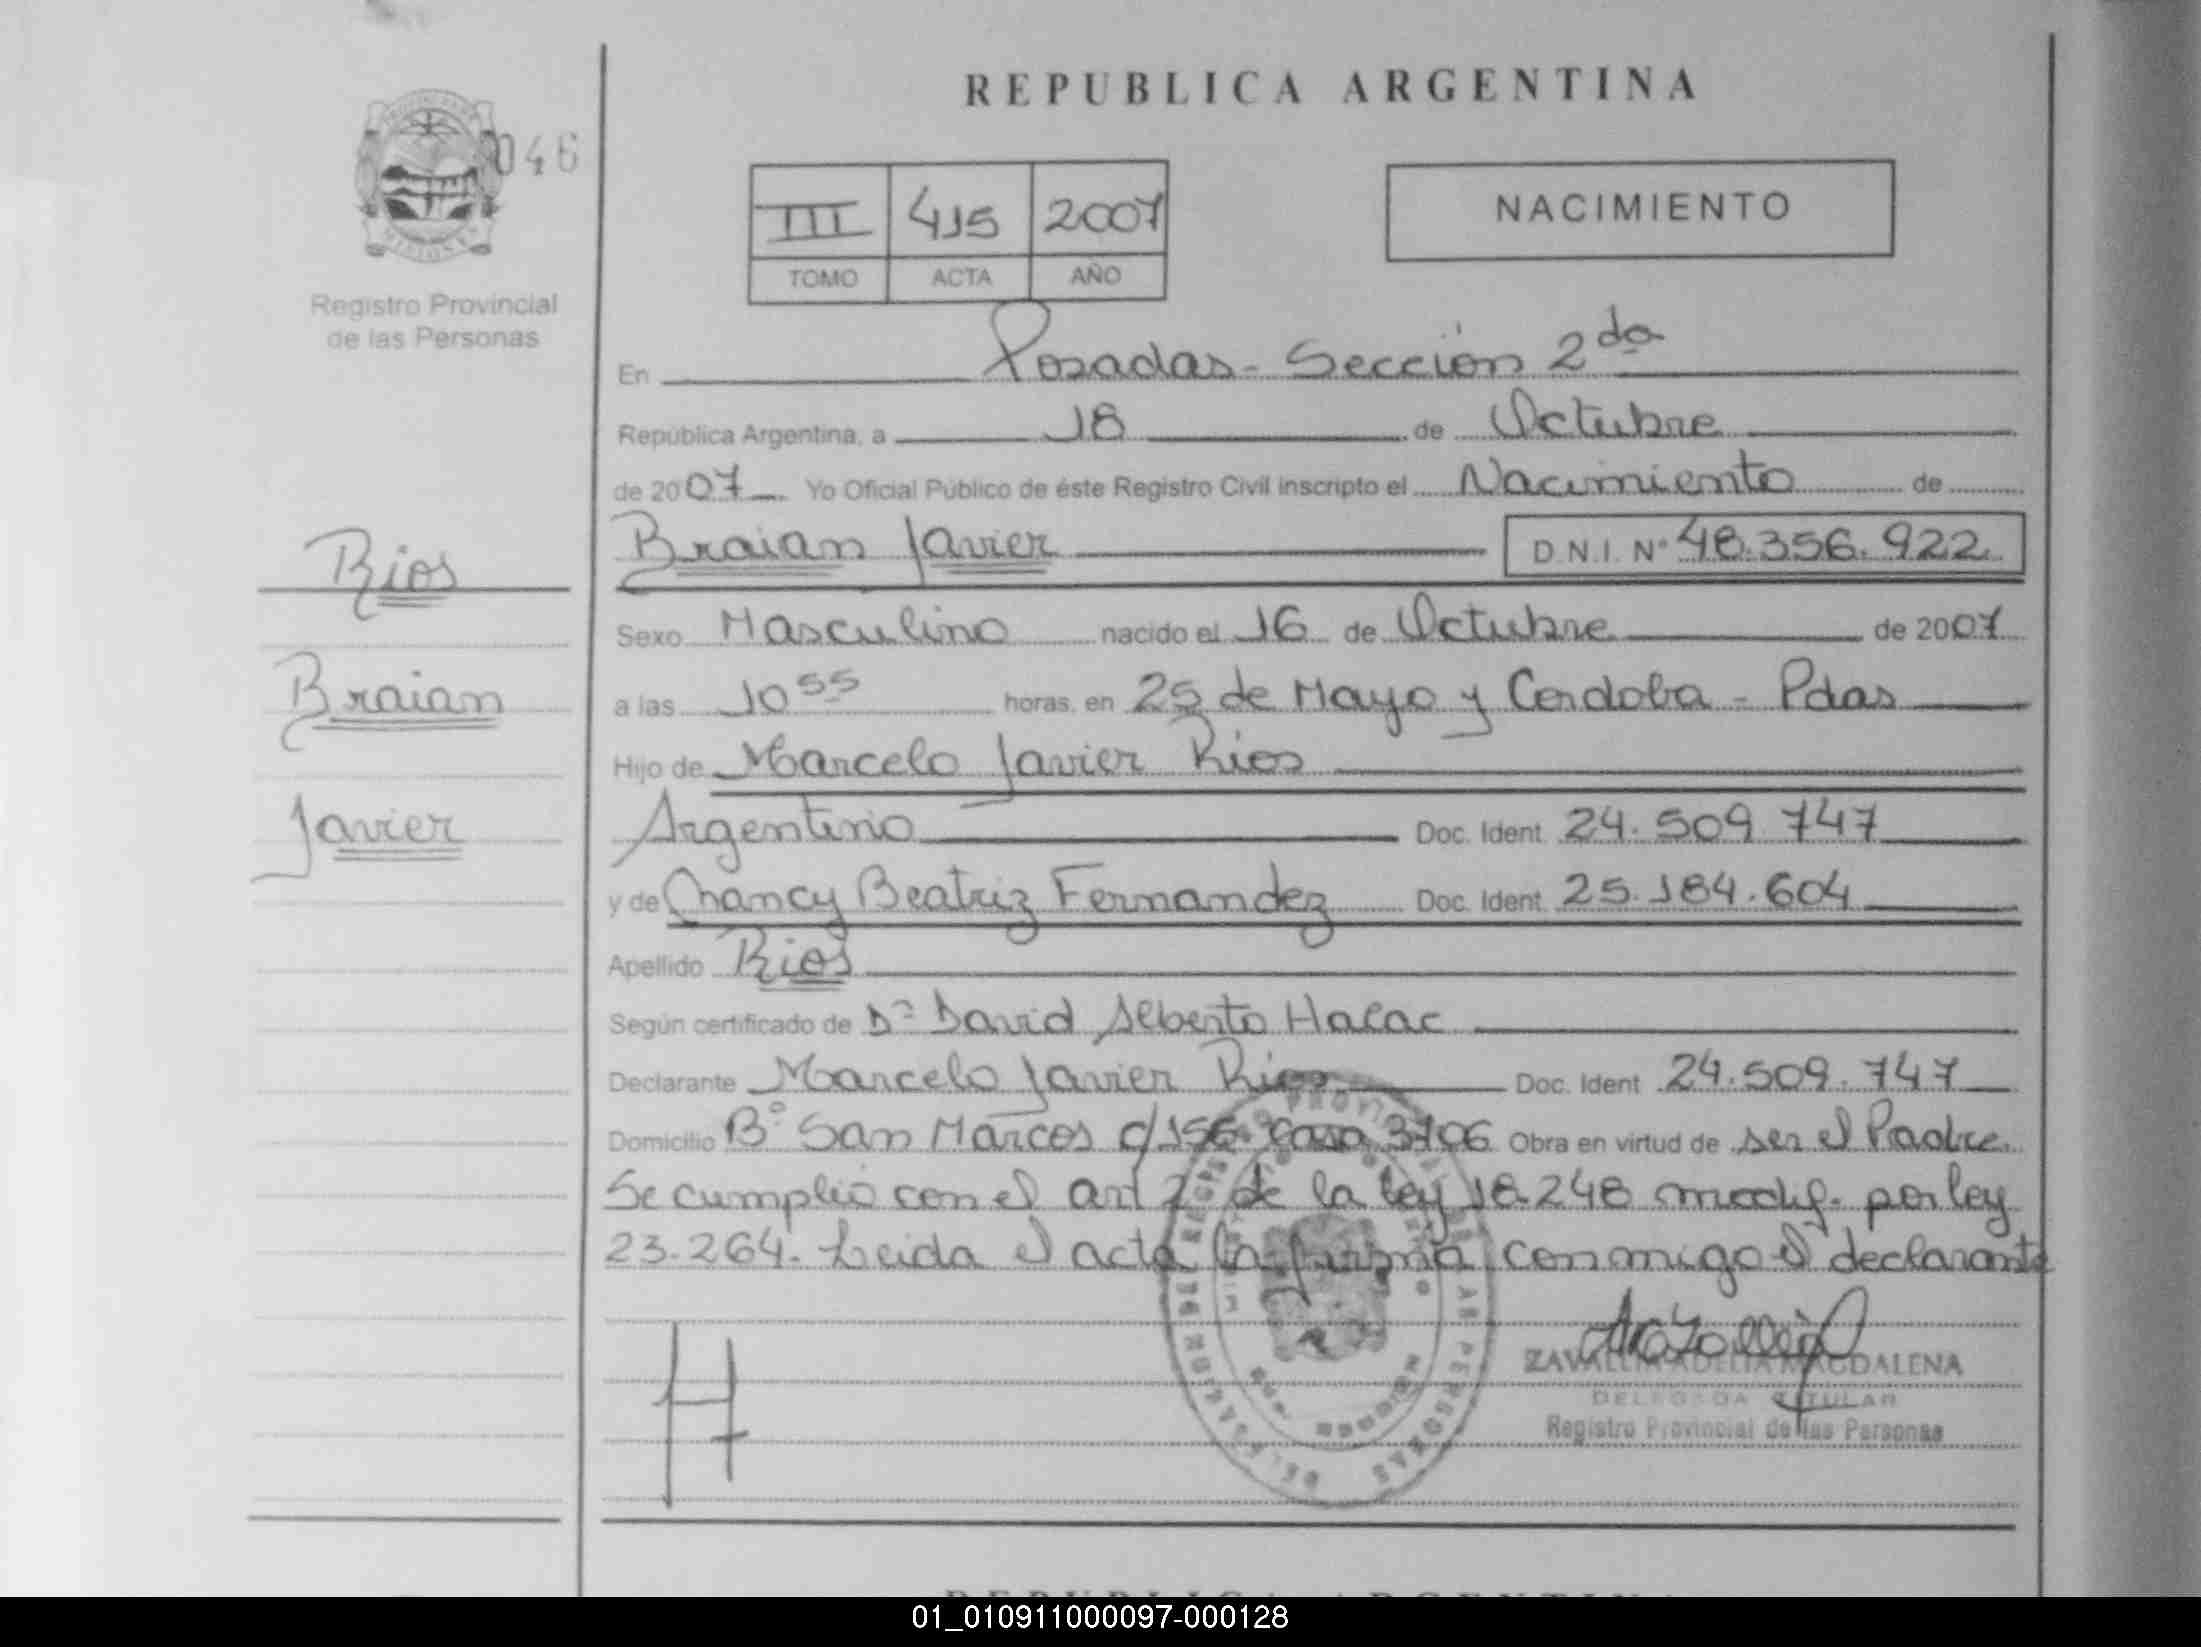 REPUBLICA ARGENTINA
046
III 415 2007
TOMO ACTA AÑO
NACIMIENTO
Registro Provincial
de las Personas
En Posadas - Sección 2da
República Argentina, a 18 de Octubre
de 2007 Yo Oficial Público de éste Registro Civil inscripto el Nacimiento de
Rios
Braian Javier D.N.I. Nº 48.356.922
Sexo Masculino nacido el 16 de Octubre de 2007
Braian
a las 10 55 horas, en 25 de Mayo y Cordoba - Pdas
Hijo de Marcelo Javier Rios
Javier
Argentino Doc. Ident. 24.509.747
y de Nancy Beatriz Fernandez Doc. Ident. 25.184.604
Apellido Rios
Según certificado de Dr David Alberto Halac
Declarante Marcelo Javier Rios Doc. Ident 24.509.747
Domicilio Bº San Marcos c/156 casa Obra en virtud de ser el Padre
Se cumplió con el art 2 de la ley 18.248 modif. por ley
23.264. Leida el acta la firma conmigo el declarante
ZAVALLIA ADELIA MAGDALENA
DELEGADA TITULAR
Registro Provincial de las Personas
01_010911000097-000128